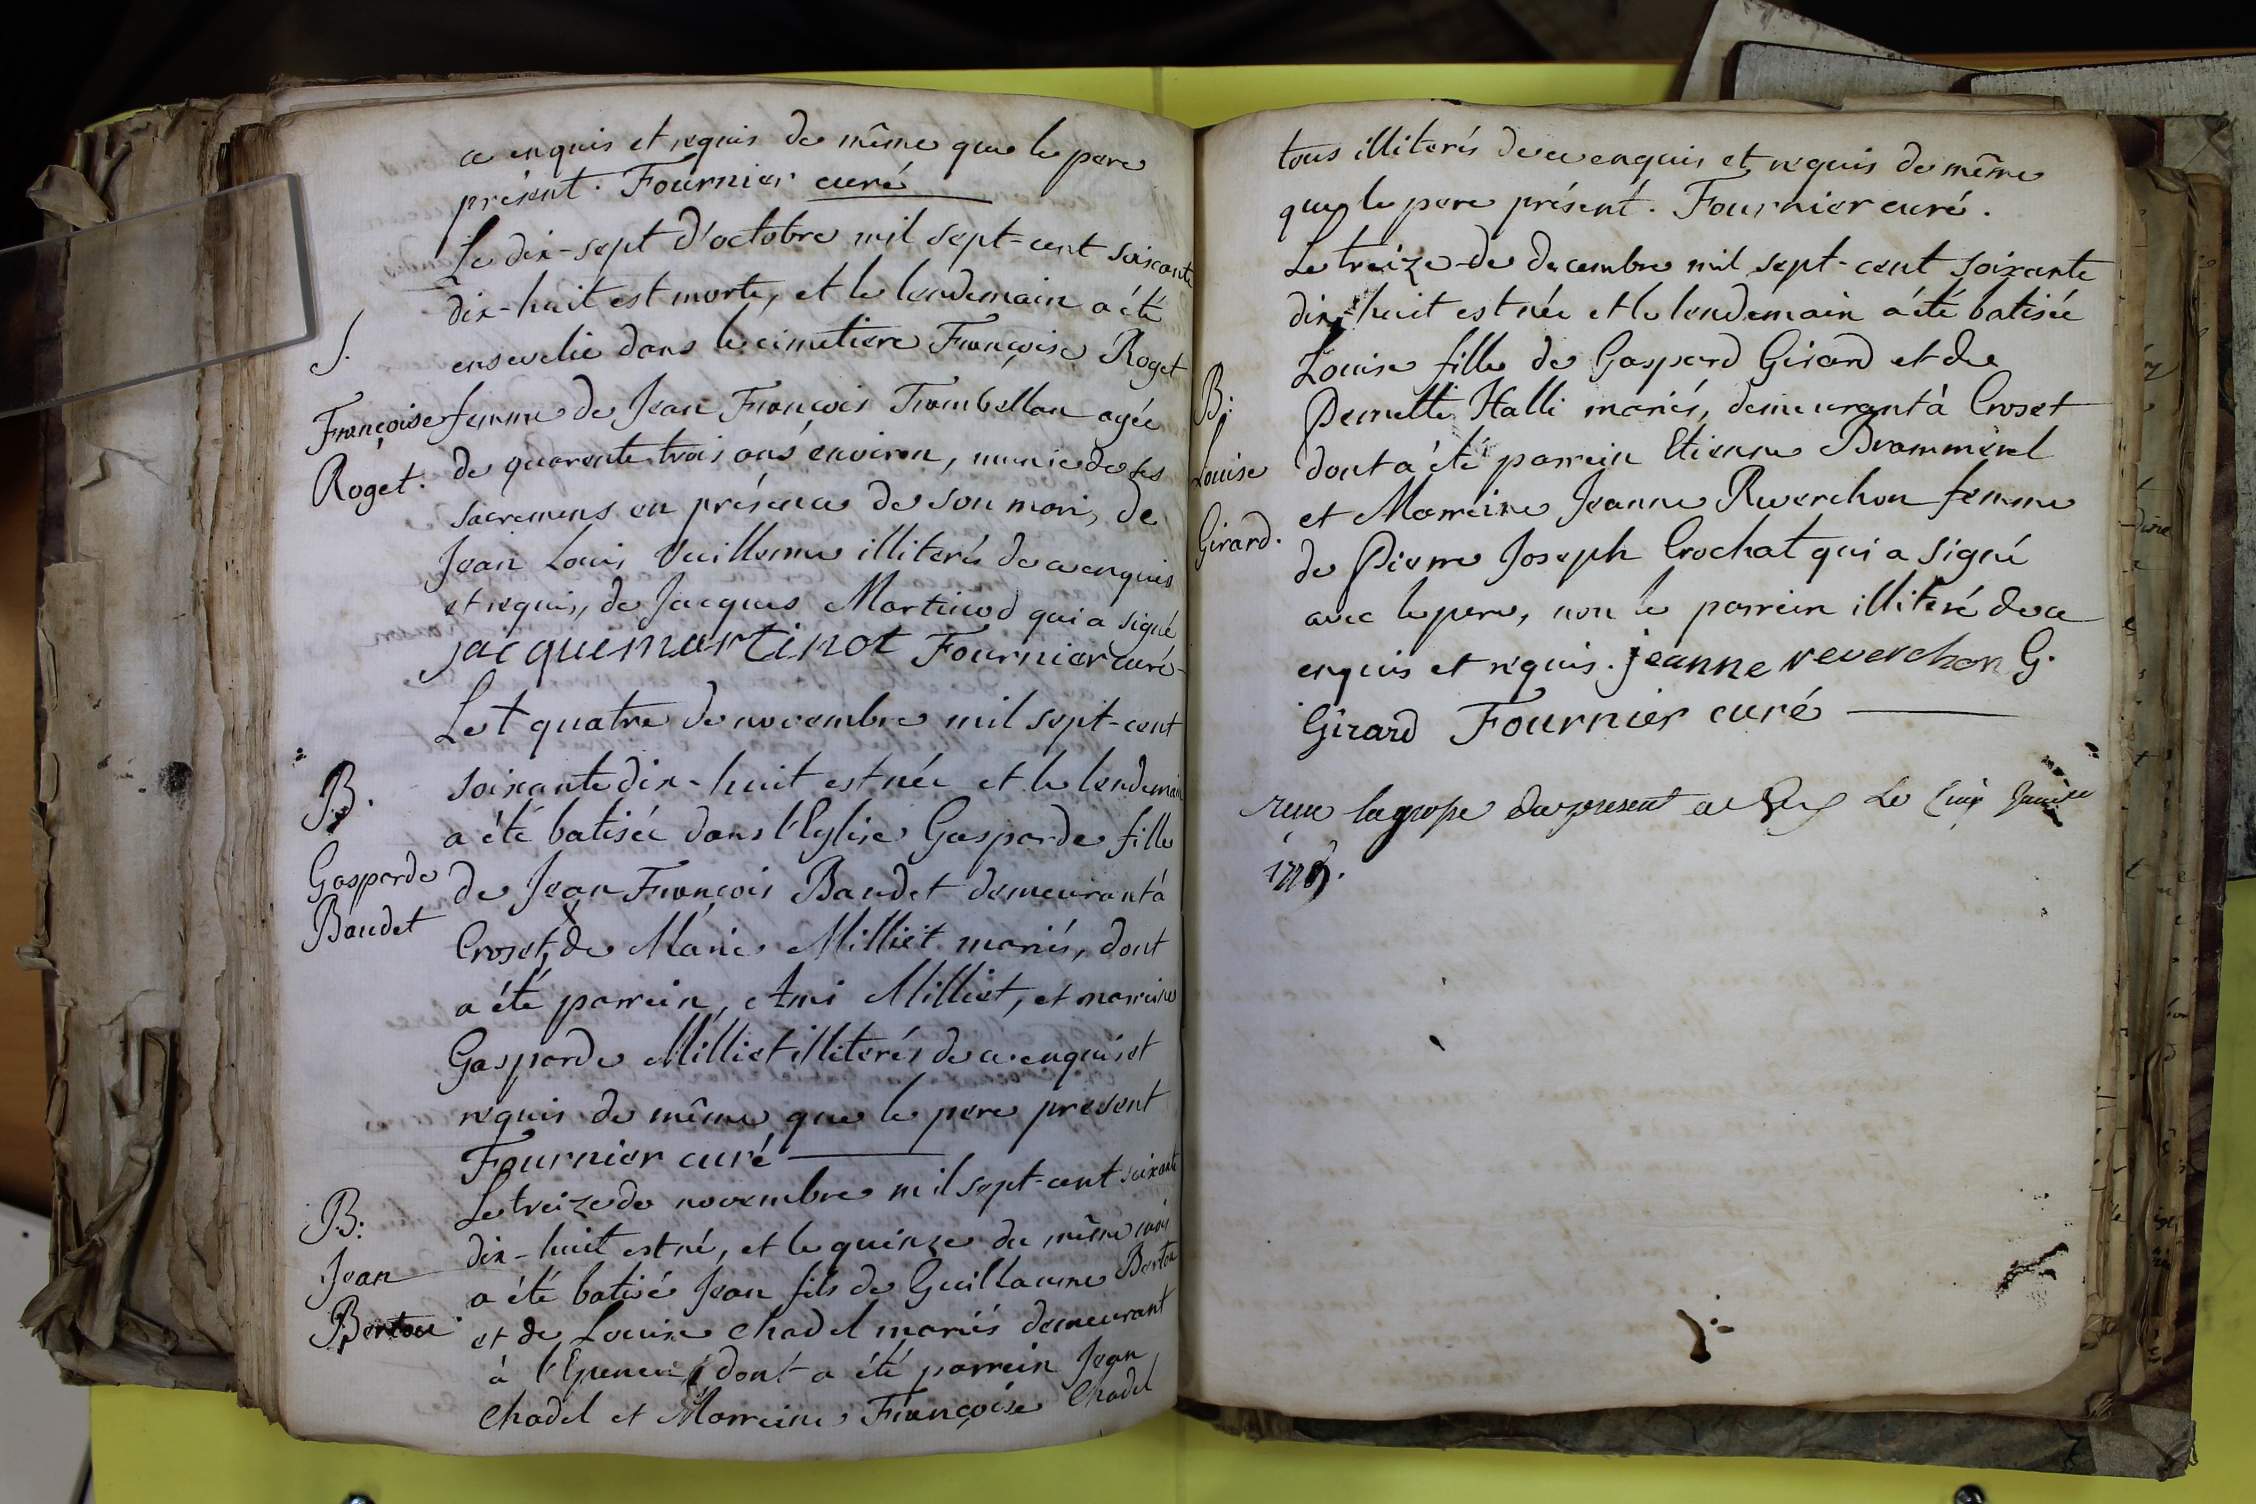 ce enquis et requis de même que le pere
présent. Fournier curé
Le dix-sept d'octobre mil sept-cent soixante
dix-huit est morte, et le lendemain a été
S.
ensevelie dans le cimetiere Françoise Roget
Françoise
femme de Jean François Trambellan agée
Roget.
de quarente trois ans environ, munie de ses
sacremens en présence de son mari, de
Jean Louis Vuillerme illiterés de ce enquis
et requis, de Jacques Martinod qui a signé
jacque martinot Fournier curé
Le quatre de novembre mil sept-cent
B.
soixante dix-huit est née et le lendemain
a été batisée dans l'Eglise Gasparde fille
Gasparde
de Jean François Baudet demeurant à
Baudet
Croset, & de Marie Milliet mariés, dont
a été parrein, Ami Milliet, et marreine
Gasparde Milliet illiterés de ce enquis et
requis de même que le pere présent
Fournier curé
B:
Le treize de novembre mil sept-cent soixante
dix-huit est né, et le quinze du même mois
Jean
a été batisé Jean fils de Guillaume Bertou
Bertou
et de Louise Chadel mariés demeurant
à dont a été parrein Jean
Chadel et Marreine Françoise Chadel
tous illiterés de ce enquis et requis de même
que le pere présent. Fournier curé.
Le treize de decembre mil sept-cent soixante
dix-huit est née et le lendemain a été batisée
Louise fille de Gaspard Girard et de
B:
Pernette Halli mariés, demeurant à Croset
Louise
dont a été parrein Etienne
et Marreine Jeanne Reverchon femme
Girard.
de Pierre Joseph Crochat qui a signé
avec le pere, non le parrein illiteré de ce
enquis et requis. jeanne reverchon G.
Girard Fournier curé
du present a Gex Le